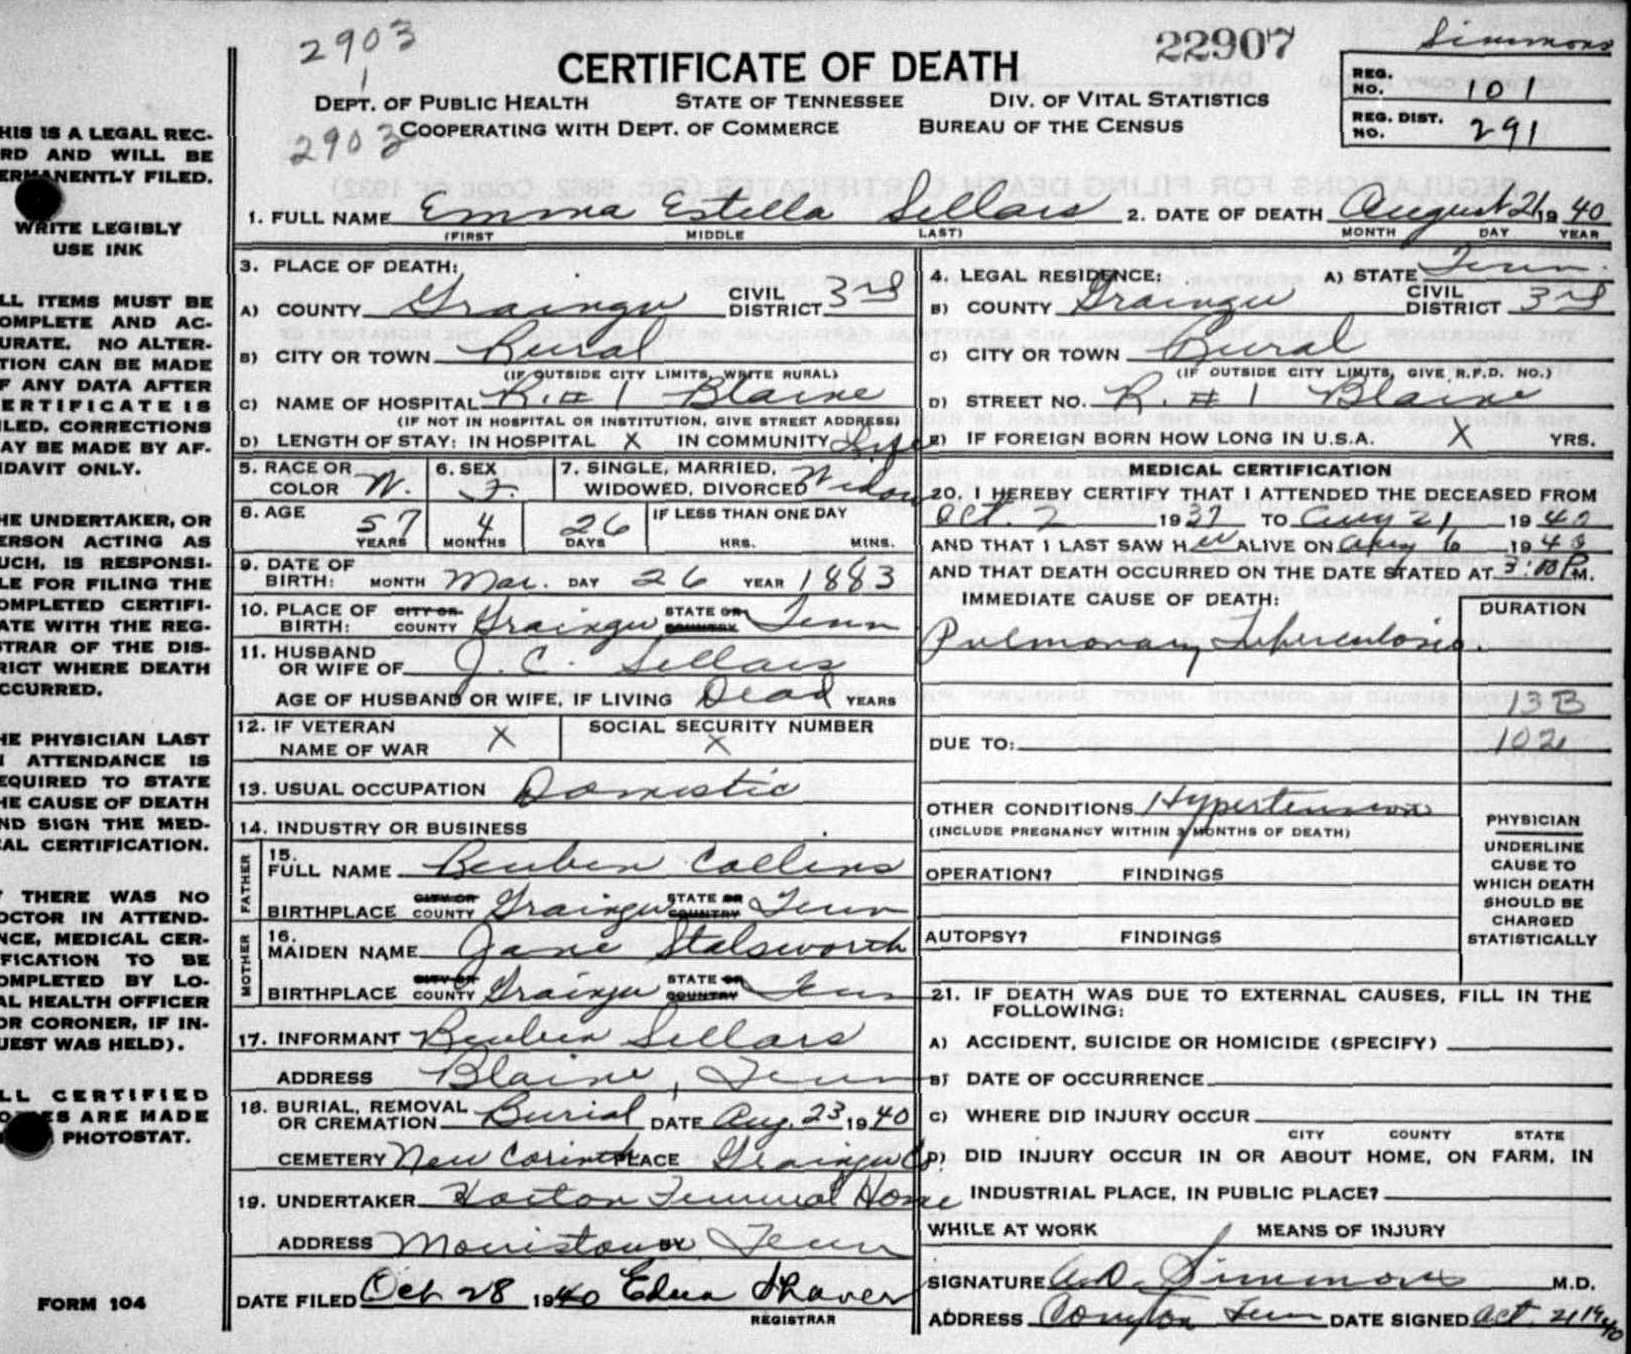 2903
1
2903
22907
Simmons
CERTIFICATE OF DEATH
DEPT. OF PUBLIC HEALTH STATE OF TENNESSEE DIV. OF VITAL STATISTICS
COOPERATING WITH DEPT. OF COMMERCE BUREAU OF THE CENSUS
REG. NO. 101
REG. DIST. NO. 291
HIS IS A LEGAL REC-
RD AND WILL BE
ERMANENTLY FILED.
WRITE LEGIBLY
USE INK
LL ITEMS MUST BE
OMPLETE AND AC-
URATE. NO ALTER-
TION CAN BE MADE
F ANY DATA AFTER
ERTIFICATE IS
ILED. CORRECTIONS
AY BE MADE BY AF-
IDAVIT ONLY.
HE UNDERTAKER, OR
ERSON ACTING AS
UCH, IS RESPONSI-
LE FOR FILING THE
OMPLETED CERTIFI-
ATE WITH THE REG-
STRAR OF THE DIS-
RICT WHERE DEATH
CCURRED.
HE PHYSICIAN LAST
N ATTENDANCE IS
EQUIRED TO STATE
HE CAUSE OF DEATH
ND SIGN THE MED-
AL CERTIFICATION.
F THERE WAS NO
OCTOR IN ATTEND-
NCE, MEDICAL CER-
IFICATION TO BE
OMPLETED BY LO-
AL HEALTH OFFICER
OR CORONER, IF IN-
UEST WAS HELD).
LL CERTIFIED
ES ARE MADE
PHOTOSTAT.
FORM 104
1. FULL NAME Emma Estella Sellars 2. DATE OF DEATH August 21 1940
(FIRST MIDDLE LAST) MONTH DAY YEAR
3. PLACE OF DEATH:
A) COUNTY Grainger CIVIL DISTRICT 3rd
B) CITY OR TOWN Rural
(IF OUTSIDE CITY LIMITS, WRITE RURAL)
C) NAME OF HOSPITAL R. #1 Blaine
(IF NOT IN HOSPITAL OR INSTITUTION, GIVE STREET ADDRESS)
D) LENGTH OF STAY: IN HOSPITAL X IN COMMUNITY Life
4. LEGAL RESIDENCE: A) STATE Tenn.
B) COUNTY Grainger CIVIL DISTRICT 3rd
C) CITY OR TOWN Rural
(IF OUTSIDE CITY LIMITS, GIVE R.F.D. NO.)
D) STREET NO. R. #1 Blaine
E) IF FOREIGN BORN HOW LONG IN U.S.A. X YRS.
5. RACE OR COLOR W. 6. SEX F. 7. SINGLE, MARRIED, WIDOWED, DIVORCED Widow
8. AGE 57 YEARS 4 MONTHS 26 DAYS IF LESS THAN ONE DAY HRS. MINS.
9. DATE OF BIRTH: MONTH Mar. DAY 26 YEAR 1883
10. PLACE OF BIRTH: CITY OR COUNTY Grainger STATE OR COUNTRY Tenn
11. HUSBAND OR WIFE OF J. C. Sellars
AGE OF HUSBAND OR WIFE, IF LIVING Dead YEARS
12. IF VETERAN NAME OF WAR X SOCIAL SECURITY NUMBER X
13. USUAL OCCUPATION Domestic
14. INDUSTRY OR BUSINESS
FATHER
15. FULL NAME Reuben Collins
BIRTHPLACE CITY OR COUNTY Grainger STATE OR COUNTRY Tenn
MOTHER
16. MAIDEN NAME Jane Stalsworth
BIRTHPLACE CITY OR COUNTY Grainger STATE OR COUNTRY Tenn
17. INFORMANT Reuben Sellars
ADDRESS Blaine, Tenn
18. BURIAL, REMOVAL OR CREMATION Burial DATE Aug. 23 1940
CEMETERY New Corinth PLACE Grainger Co.
19. UNDERTAKER Horton Funeral Home
ADDRESS Morristown, Tenn
DATE FILED Oct 28 1940 Edna Shaver
REGISTRAR
MEDICAL CERTIFICATION
20. I HEREBY CERTIFY THAT I ATTENDED THE DECEASED FROM
Oct. 2 1937 TO Aug 21 1940
AND THAT I LAST SAW HER ALIVE ON 6 1940
AND THAT DEATH OCCURRED ON THE DATE STATED AT 3:00 P M.
IMMEDIATE CAUSE OF DEATH: DURATION
Pulmonary Tuberculosis.
13B
DUE TO: 102
OTHER CONDITIONS Hypertension
(INCLUDE PREGNANCY WITHIN 3 MONTHS OF DEATH)
OPERATION? FINDINGS
AUTOPSY? FINDINGS
PHYSICIAN
UNDERLINE
CAUSE TO
WHICH DEATH
SHOULD BE
CHARGED
STATISTICALLY
21. IF DEATH WAS DUE TO EXTERNAL CAUSES, FILL IN THE
FOLLOWING:
A) ACCIDENT, SUICIDE OR HOMICIDE (SPECIFY)
B) DATE OF OCCURRENCE
C) WHERE DID INJURY OCCUR
CITY COUNTY STATE
D) DID INJURY OCCUR IN OR ABOUT HOME, ON FARM, IN
INDUSTRIAL PLACE, IN PUBLIC PLACE?
WHILE AT WORK MEANS OF INJURY
SIGNATURE A. D. Simmons M.D.
ADDRESS Tenn DATE SIGNED Oct. 21 1940